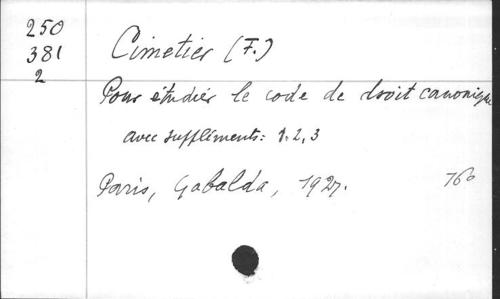 250
381
2
Cimetier (F.)
Pour étudier le code de droit canonique
avec suppléments: 1. 2, 3
Paris, Gabalda, 1927.